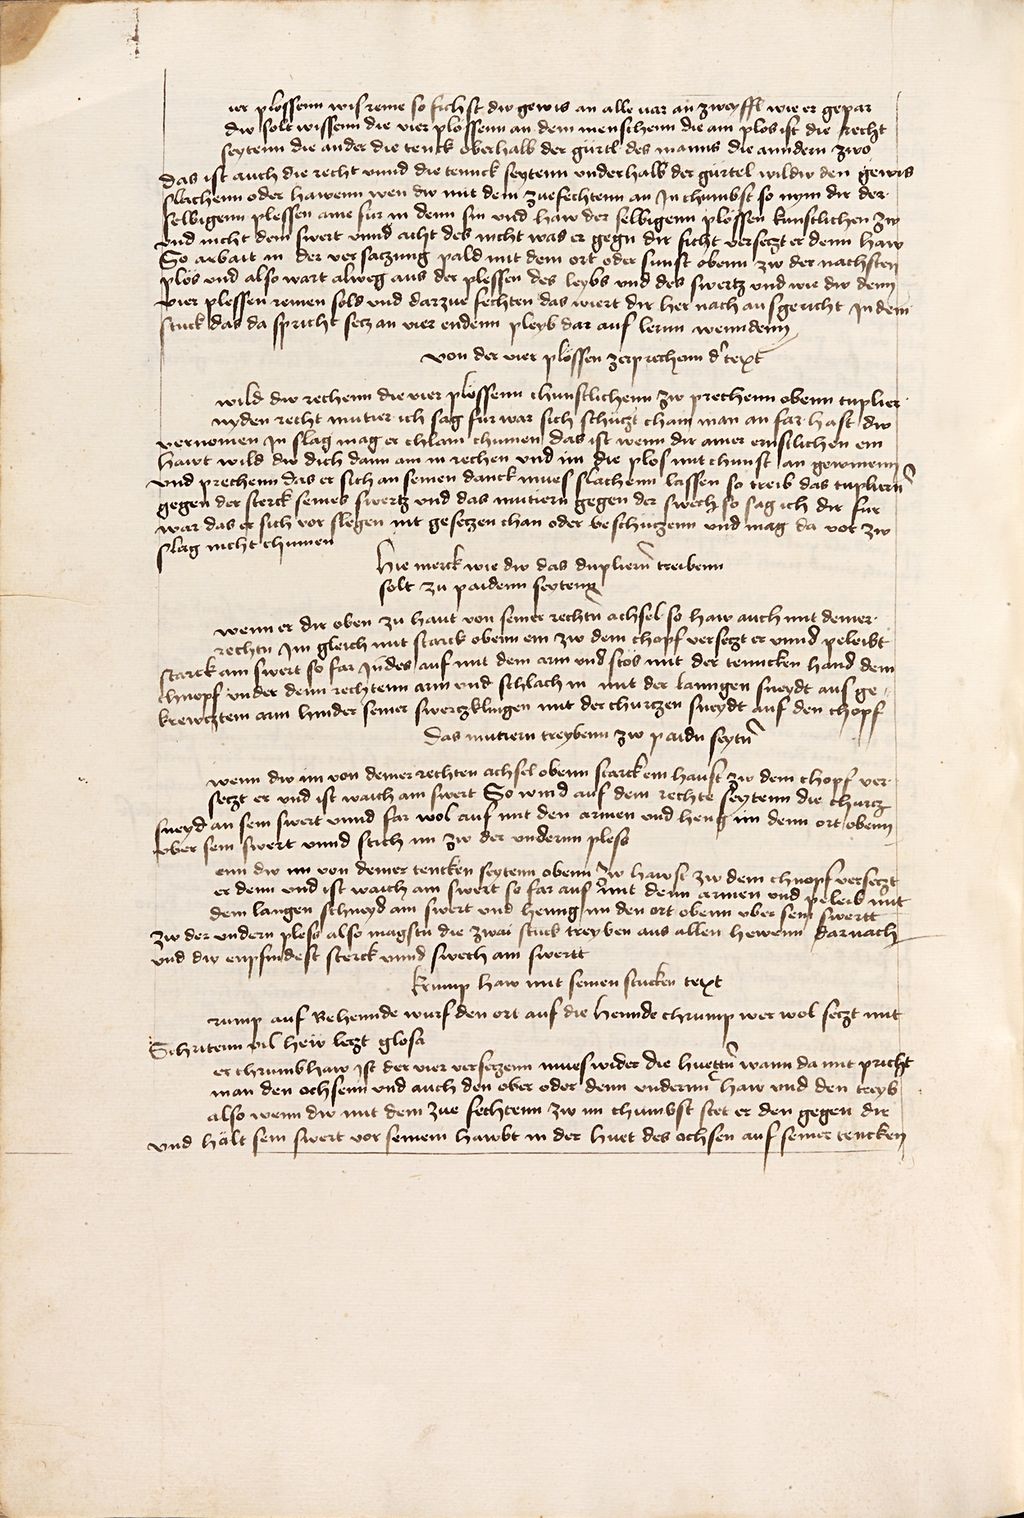 ier plossenn wis reme so sichst dw gewis an alle uar an zweyffl wie er gepar
dw solt wissenn die vier plossenn an dem menschenn die ain plos ist die recht
seytenn die ander die tenck oberhalb der gürtl des manns die anndern zwo
das ist auch die recht unnd die tennck seytenn underhalb der gürtel wildw den gewis
slachenn oder hawenn wen dw mit dem zuefechtenn an In chumbst so nym dir der
selbigenn plessen aine für in denn sin und haw der selbigenn plossen kunstlichen zw
und nicht dem swert unnd acht des nicht was er gegn dir ficht versetzt er denn haw
So arbait in der versatzung pald mit dem ort oder sunst obenn zw der nachsten
plos und also wart alweg aus der plessen des leybs und des swertz und wie dw denn
vier plessen remen sols und darzue fechten das wiert dir her nach ausgericht In dem
stuck das da spricht setz an vier endenn pleyb dar auf lernn wenndenn
von der vier plossen zerprechenn d' text
wild dw rechenn die vier plossenn chunstlichenn zw prechenn obenn tuplier
nyden recht mutier ich sag für war sich schützt chain man an far hast dw
vernomen In slag mag er chlain chumen das ist wenn dir ainer ernstlichen ein
hawt wild dw dich dann ain in rechen und im die plos mit chunst an gewinnenn
und prechenn das er sich an seinen danck mues slachenn lassen so treib das tupliern
gegen der sterck seines swertz und das mutiern gegen der swech so sag ich dir für
war das er sich vor slegen nit gesetzen chan oder beschutzenn und mag da vor zw
slag nicht chumen
Hie merck wie dw das duplieren treibenn
solt zu paidenn seytenn
wenn er dir oben zu haut von seiner rechtn achsel so haw auch mit deiner
rechtn Im gleich mit starck obenn ein zw dem chopf versetzt er unnd peleibt
starck am swert so far Indes auf mit dem arm und stos mit der tenncken hand dein
chnopf under denn rechtenn arm und schlach in mit der lanngen sneydt aus ge
krewtztem arm hinder seiner swertzklingen mit der churtzen sneydt auf den chopf
Das mutiern treybenn zw paidn seytn
wenn dw im von deiner rechten achsel obenn starck ein haust zw dem chopf ver
setzt er und ist waich am swert So wind auf dein rechte seytenn die churtz
sneyd an sein swert unnd far wol auf mit den armen und heng im denn ort obenn
uber sein swert unnd stich im zw der undernn pless
enn dw im von deiner tencken seytenn obenn zw hawst zw dem chnopf versetzt
er denn und ist waich am swert so far auf mit denn armen und peleib mit
dem langen schneyd am swert und henng im den ort obenn uber sein swertt
zw der undern pless also magstu die zwai stuck treyben aus allen hewenn darnach
und dw enpfindest sterck unnd swech am swertt
Krump haw mit seinen stucken text
rump auf Behennde wurf den ort auf die hennde chrump wer wol setzt mit
Schritenn vil hew letzt glosa
er chrumbhaw Ist der vier versetzenn aines wider die huettn wann da mit pricht
man den ochsenn und auch den ober oder denn undernn haw und den treyb
also wenn dw mit dem zue fechtenn zw im chumbst stet er den gegen dir
und hält sein swert vor seinem hawbt in der huet des ochsen auf seiner tencken